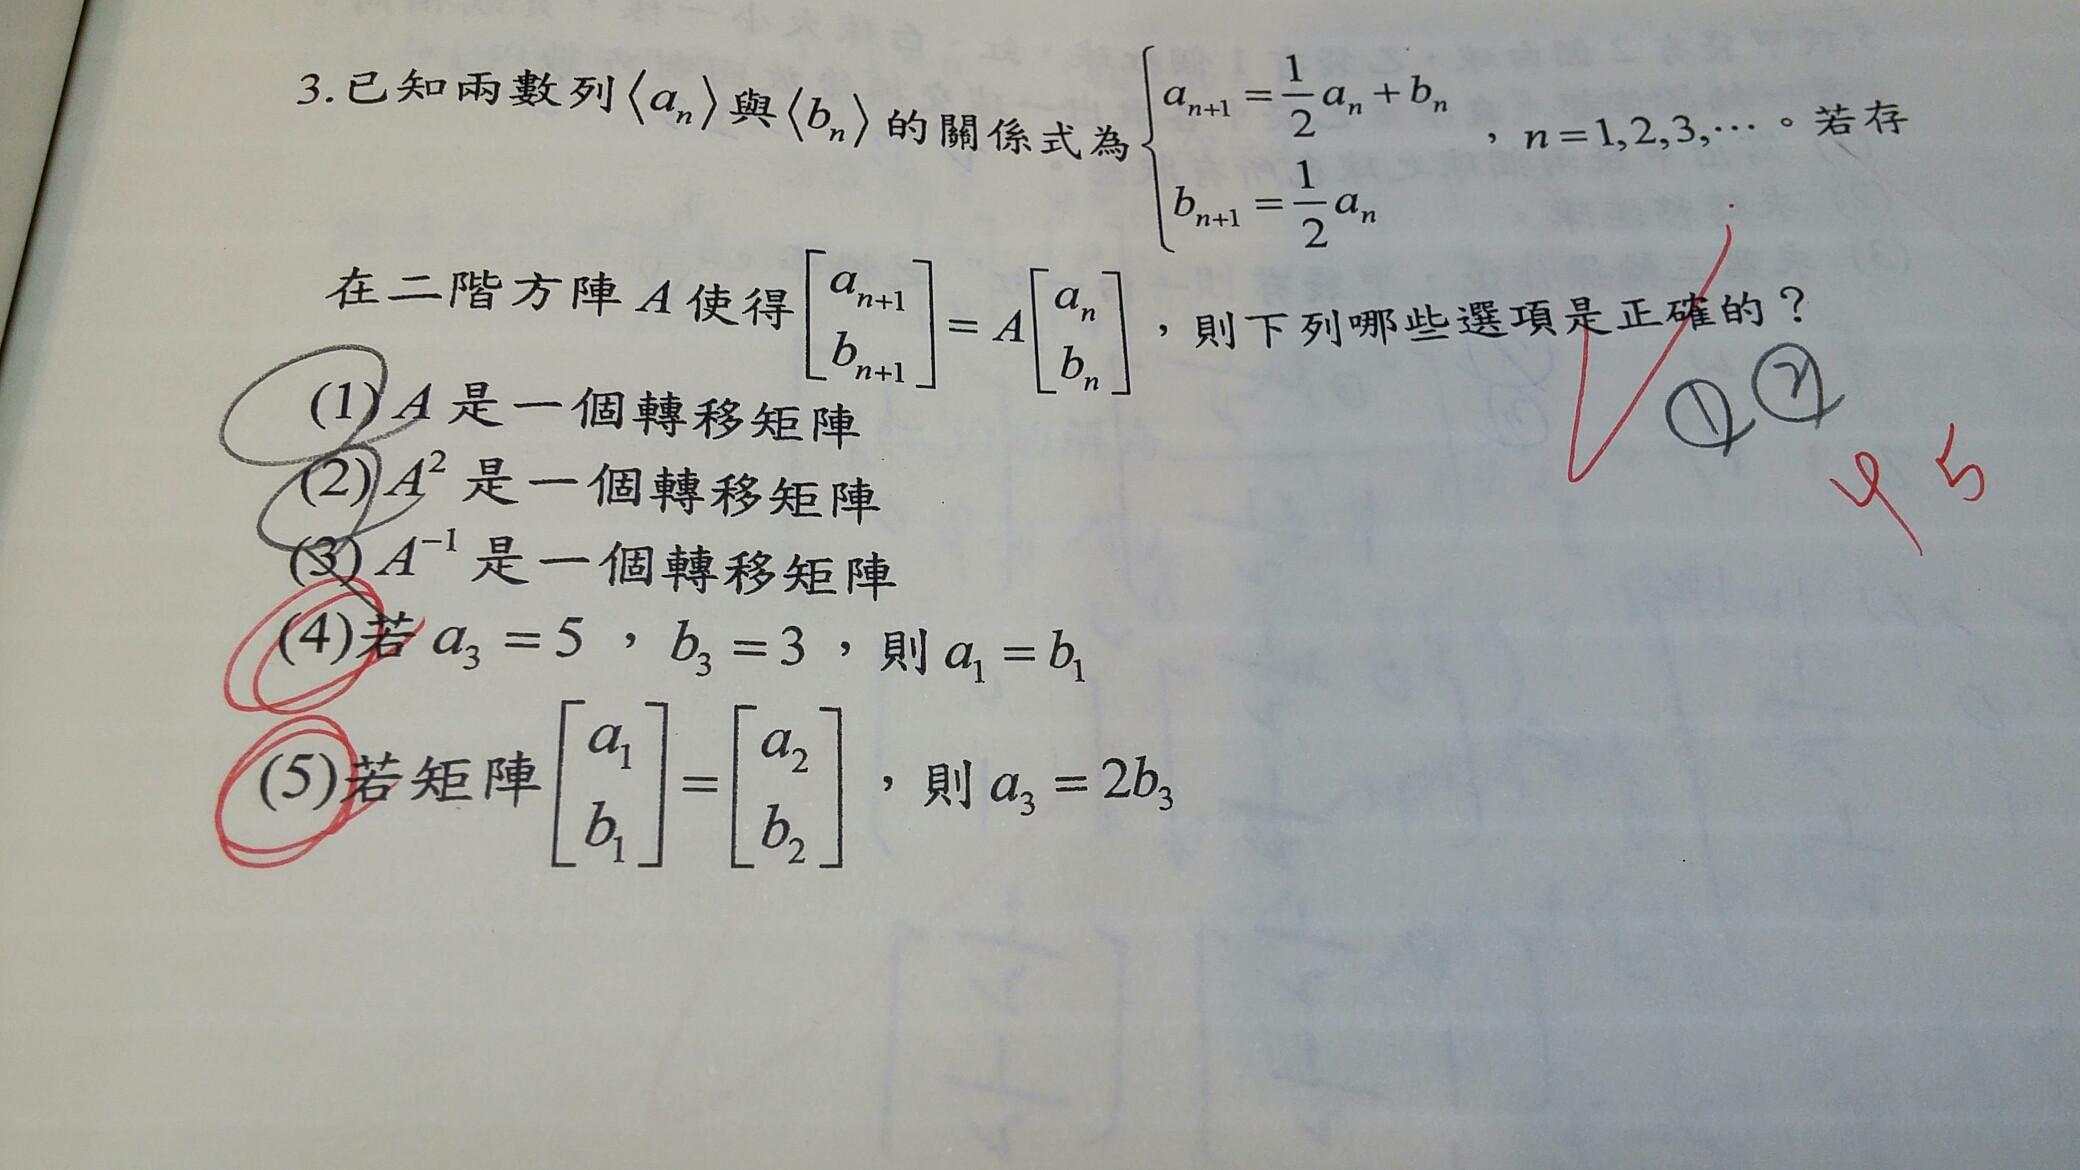 3.已知兩數列⟨aₙ⟩與⟨bₙ⟩的關係式為{aₙ₊₁ = 1/2 aₙ + bₙ, bₙ₊₁ = 1/2 aₙ ,n=1,2,3,⋯。若存
在二階方陣 A 使得[aₙ₊₁ bₙ₊₁] = A[aₙ bₙ],則下列哪些選項是正確的?
① ②
4 5
(1) A 是一個轉移矩陣
(2) A² 是一個轉移矩陣
(3) A⁻¹ 是一個轉移矩陣
(4)若 a₃ = 5 , b₃ = 3 ,則 a₁ = b₁
(5)若矩陣[a₁ b₁] = [a₂ b₂] ,則 a₃ = 2b₃